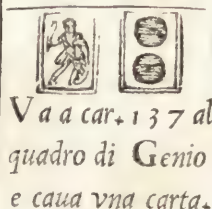 Va a car. 137 al
quadro di Genio
e caua vna carta.